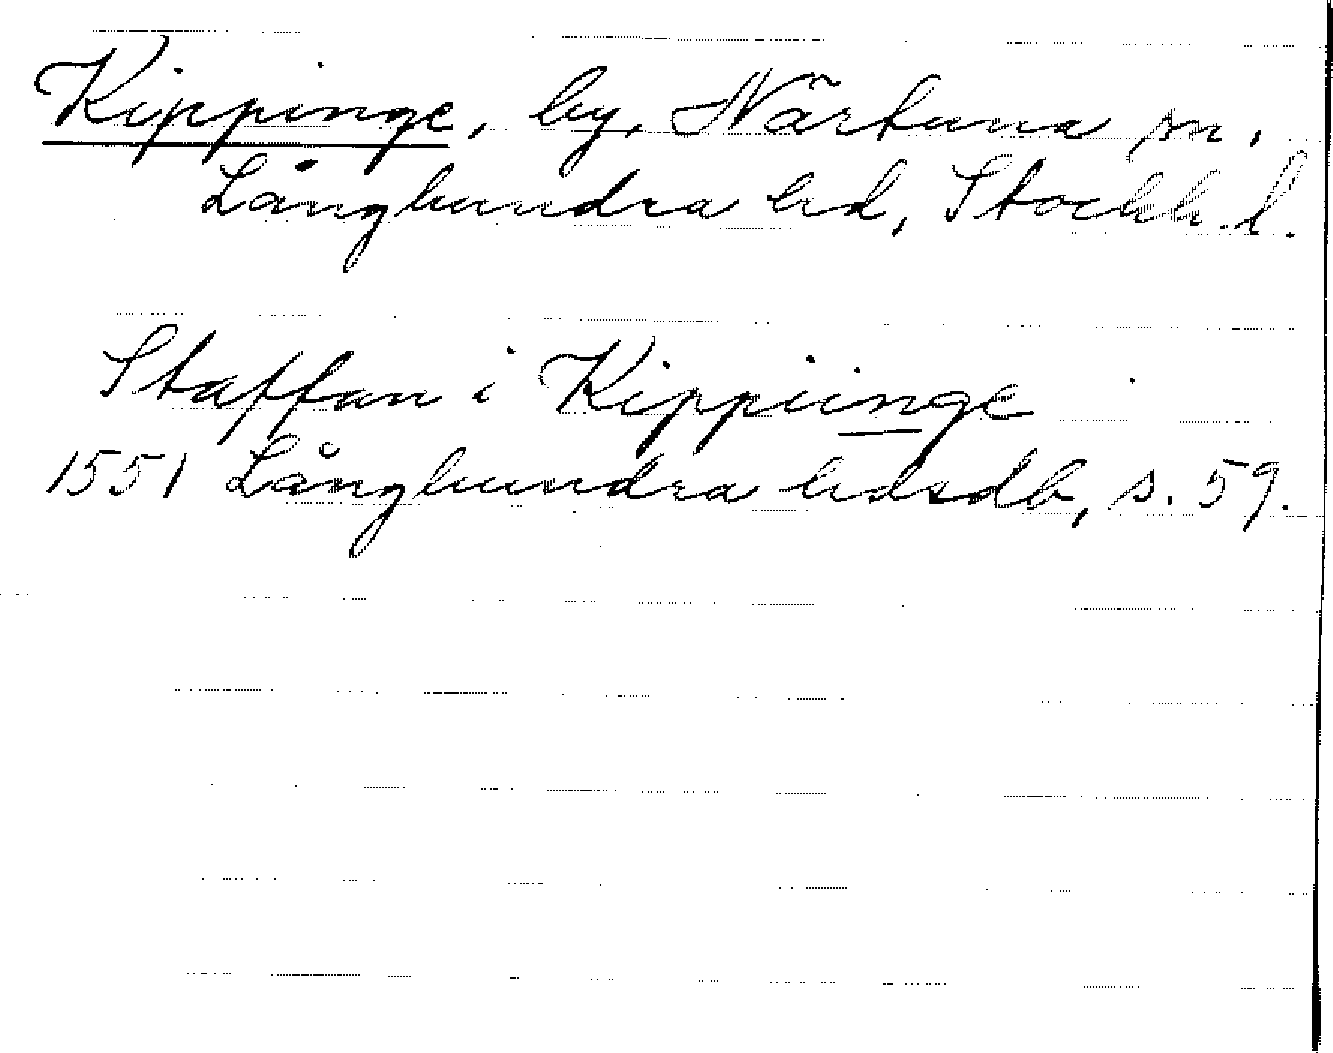 Kippinge, by, Närtuna sn.
Långhundra hd, Stockh. l.
Staffan i Kippiinge
1551 Långhundra hdsdb, s. 59.